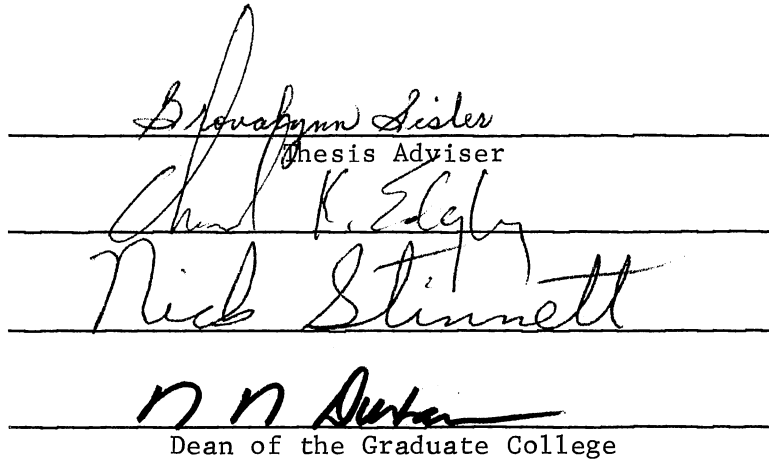 Grovalynn Sisler
Thesis Adviser
K. Edgley
Nick Stinnett
N N Durham
Dean of the Graduate College